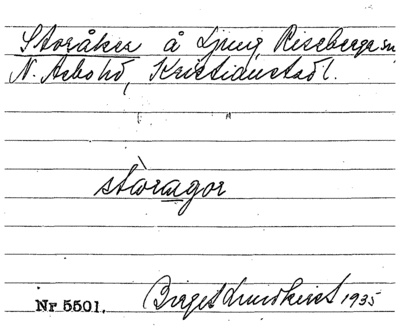 Storåker å Ljung Riseberga sn
N. Åsbo hd, Kristianstad l.
stòragor
Nr 5501. Birgit Lundkvist 1935